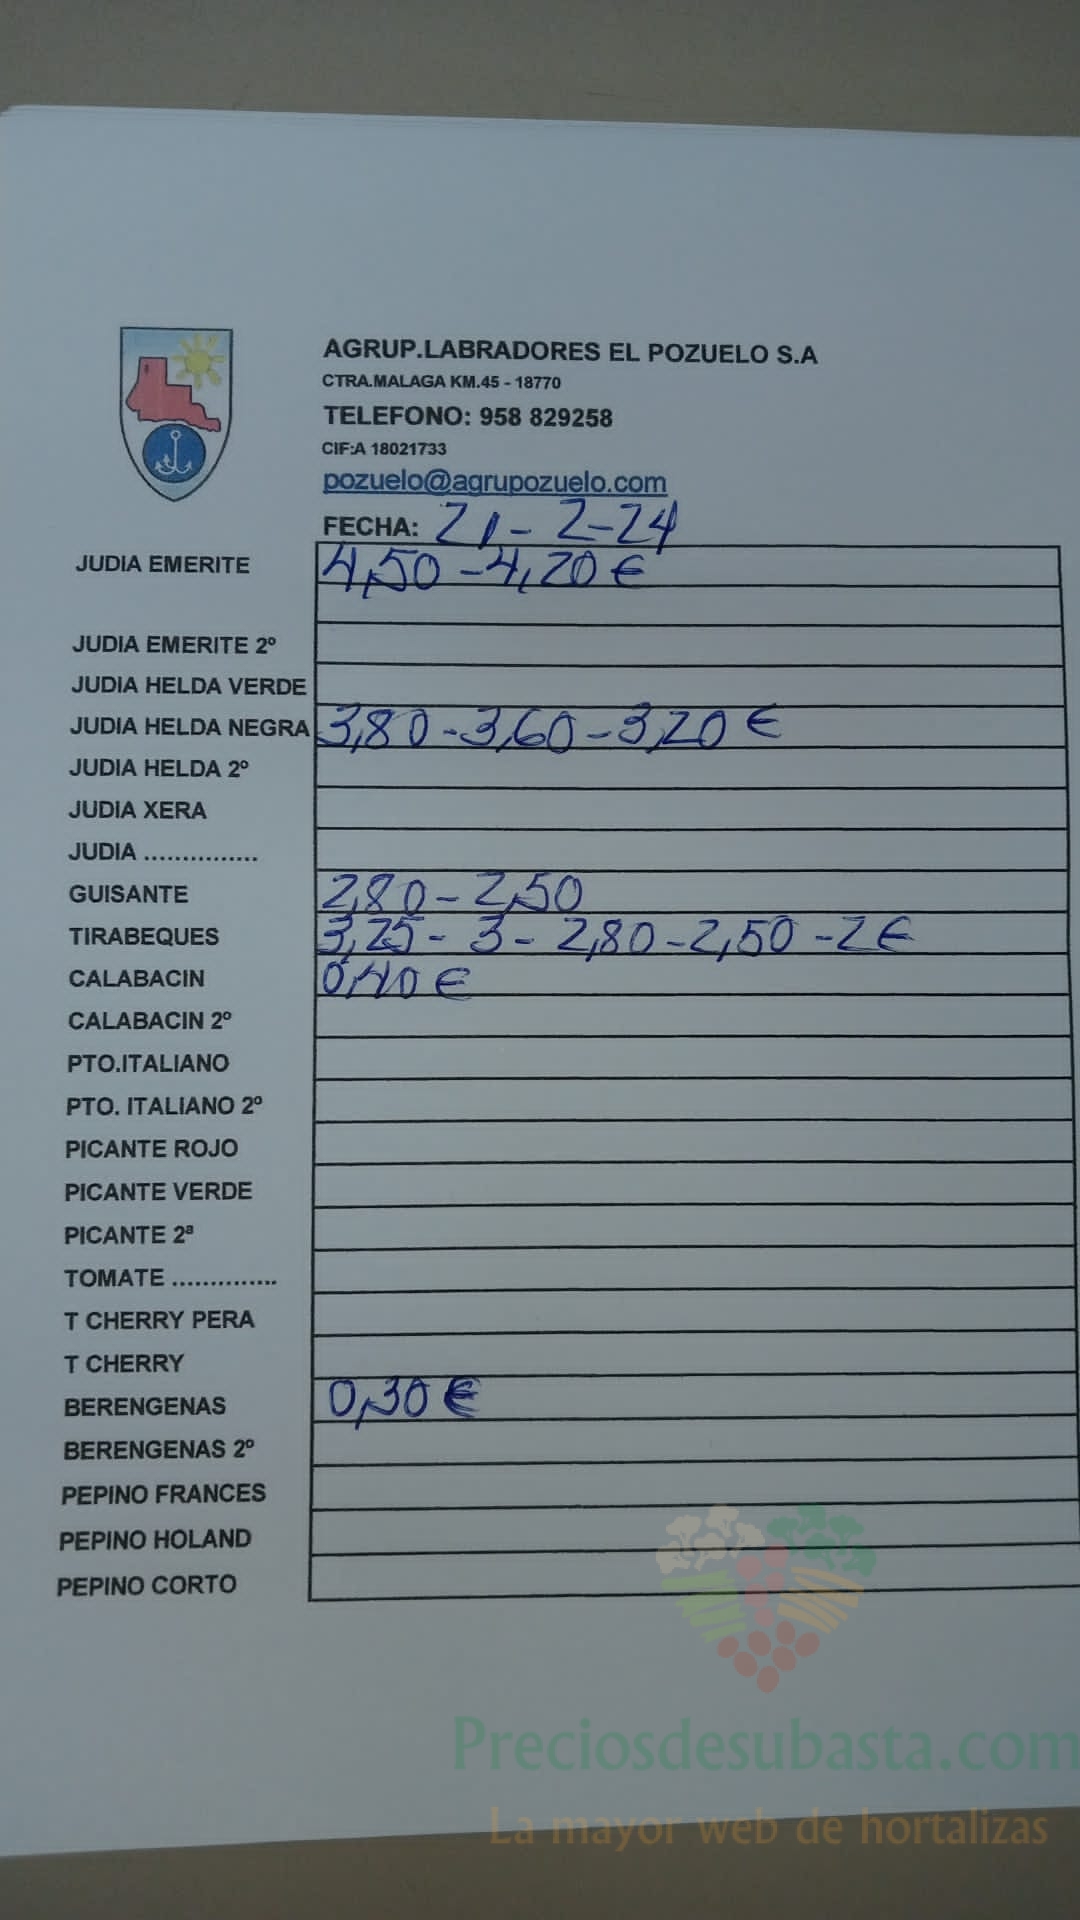 AGRUP.LABRADORES EL POZUELO S.A
CTRA.MALAGA KM.45 - 18770
TELEFONO: 958 829258
CIF:A 18021733
pozuelo@agrupozuelo.com
FECHA: 21-2-24
JUDIA EMERITE 4,50-4,20€
JUDIA EMERITE 2º
JUDIA HELDA VERDE
JUDIA HELDA NEGRA 3,80-3,60-3,20€
JUDIA HELDA 2º
JUDIA XERA
JUDIA ...............
GUISANTE 2,80-2,50
TIRABEQUES 3,25-3-2,80-2,50-2€
CALABACIN 0,40€
CALABACIN 2º
PTO.ITALIANO
PTO. ITALIANO 2º
PICANTE ROJO
PICANTE VERDE
PICANTE 2ª
TOMATE ..............
T CHERRY PERA
T CHERRY
BERENGENAS 0,30€
BERENGENAS 2º
PEPINO FRANCES
PEPINO HOLAND
PEPINO CORTO
Preciosdesubasta.com
La mayor web de hortalizas